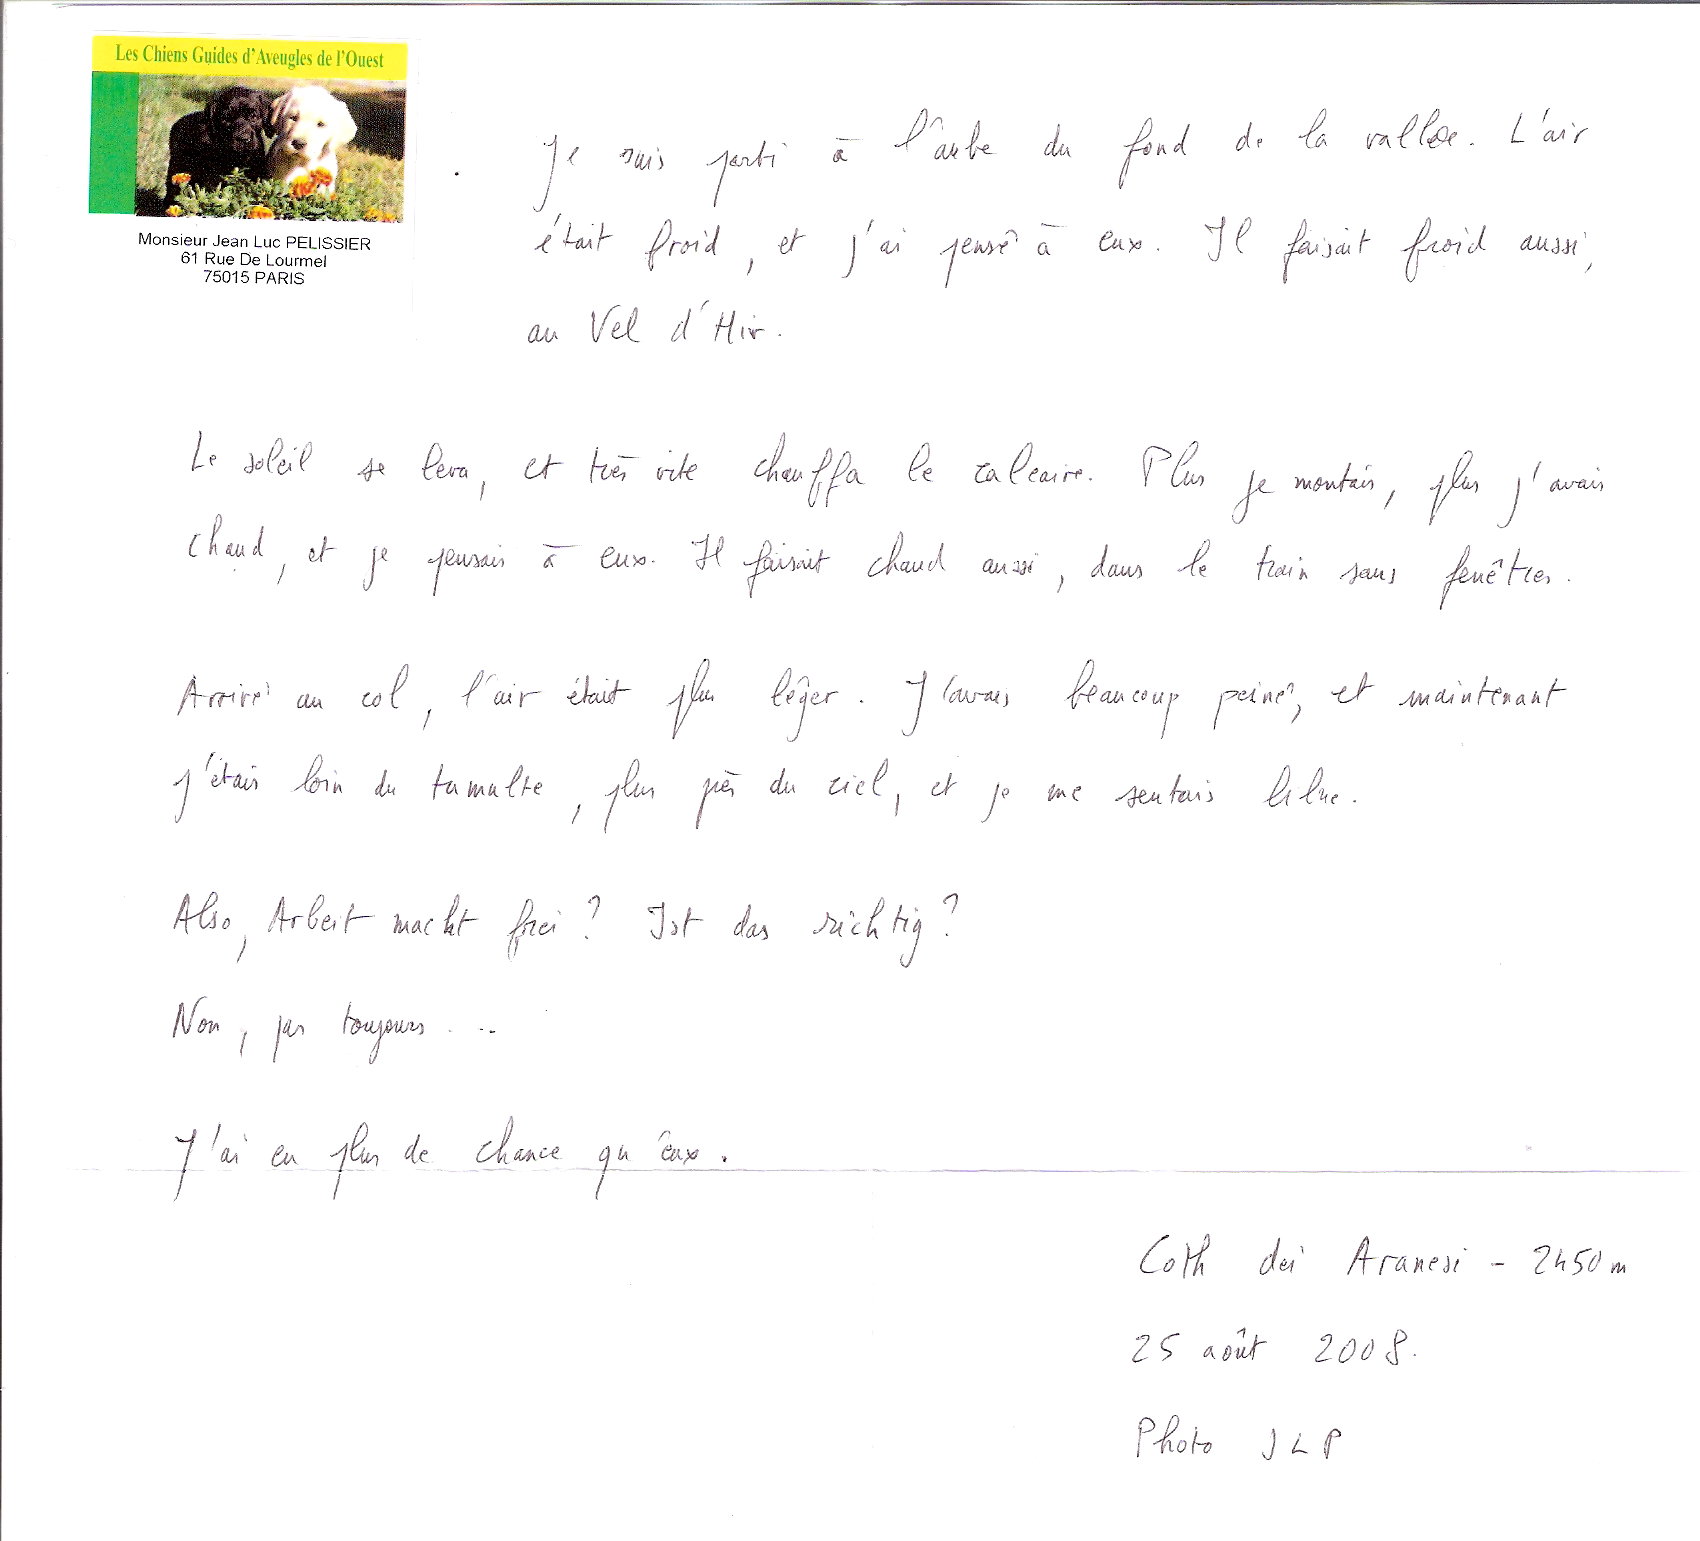 Les Chiens Guides d'Aveugles de l'Ouest
Monsieur Jean Luc PELISSIER
61 Rue De Lourmel
75015 PARIS
Je suis parti à l'aube du fond de la vallée. L'air
était froid, et j'ai pensé à eux. Il faisait froid aussi,
au Vel d'Hiv.
Le soleil se leva, et très vite chauffa le calcaire. Plus je montais, plus j'avais
chaud, et je pensais à eux. Il faisait chaud aussi, dans le train sans fenêtres.
Arrivé au col, l'air était plus léger. J'avais beaucoup peiné, et maintenant
j'étais loin du tumulte, plus près du ciel, et je me sentais libre.
Also, Arbeit macht frei? Ist das richtig?
Non, pas toujours...
J'ai eu plus de chance qu'eux.
Coth dei Aranesi - 2450m
25 août 2008.
Photo JLP